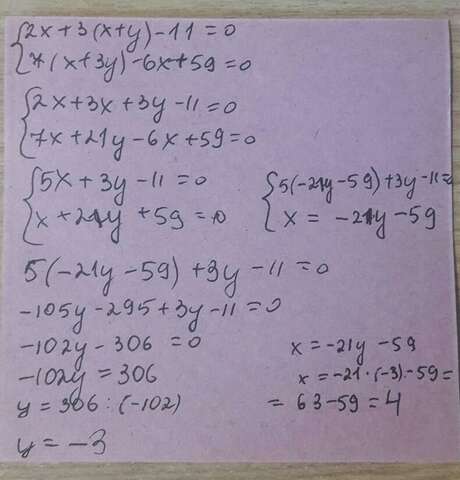 2x+3(x+y)-11=0
7(x+3y)-6x+59=0
2x+3x+3y-11=0
7x+21y-6x+59=0
5x+3y-11=0
x+21y+59=0
5(-21y-59)+3y-11=0
x=-21y-59
5(-21y-59)+3y-11=0
-105y-295+3y-11=0
-102y-306=0
-102y=306
y=306:(-102)
y=-3
x=-21y-59
x=-21·(-3)-59=
=63-59=4